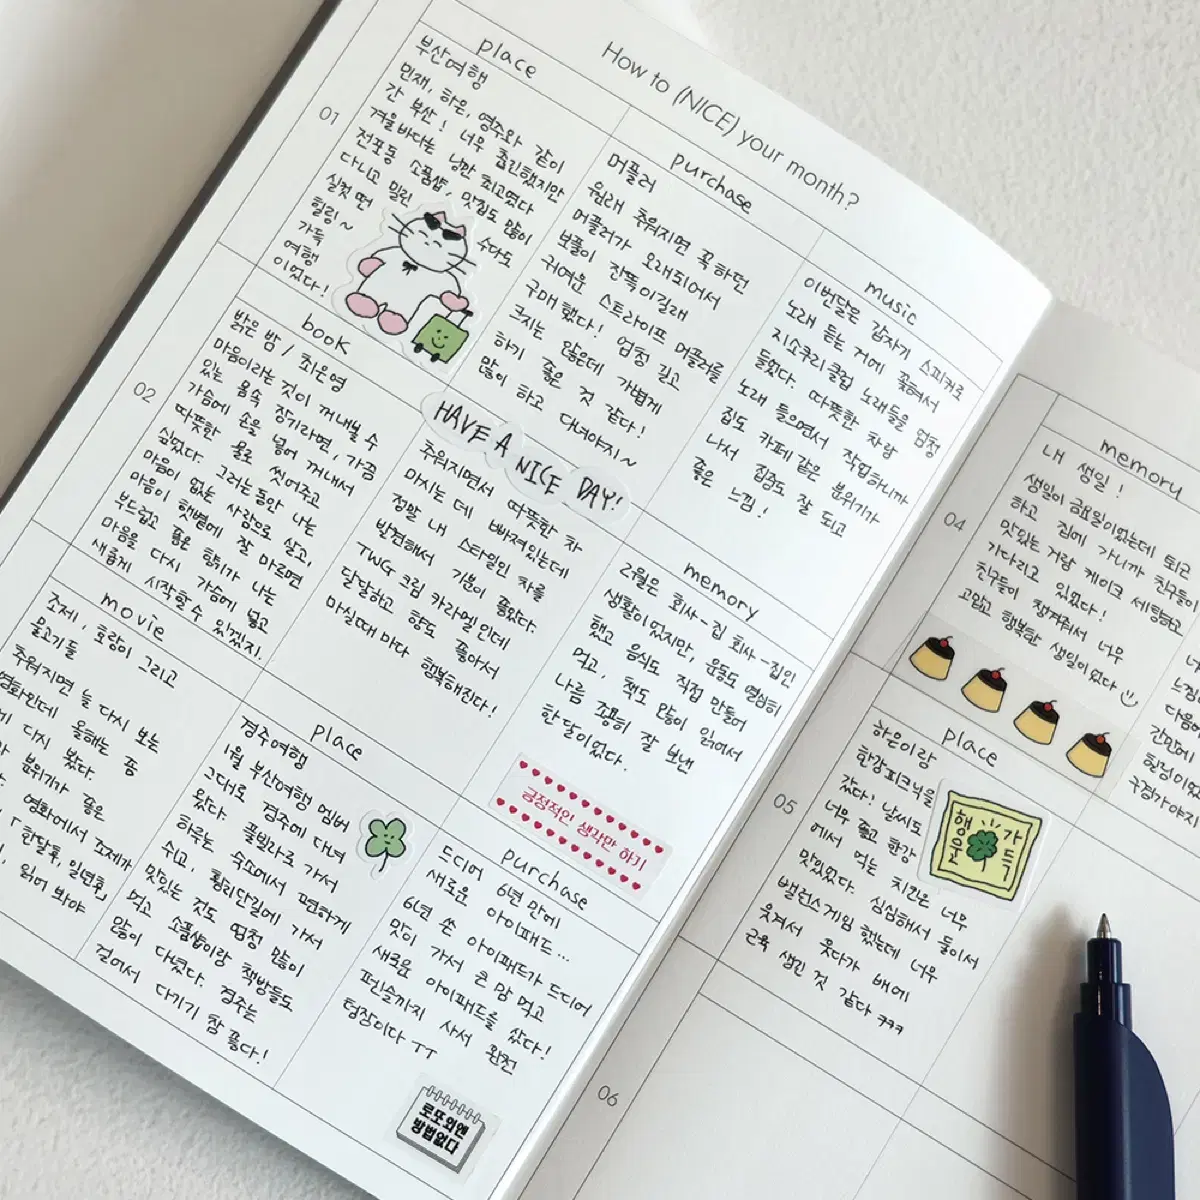 How to (NICE) your month?
01
place
부산여행
민재, 하은, 영주와 같이
간 부산! 너무 춥긴했지만
겨울바다는 낭만 최고였다
전포동 소품샵, 맛집도 많이
다니고 밀린 수다도
실컷 떤
힐링~
가득
여행
이었다!
purchase
머플러
원래 추워지면 꼭 하던
머플러가 오래되어서
보풀이 잔뜩이길래
귀여운 스트라이프 머플러를
구매했다! 엄청 길고
크지는 않은데 가볍게
하기 좋은 것 같다!
많이 하고 다녀야지~
music
이번달은 갑자기 스피커로
노래 듣는 거에 꽂혀서
지소쿠리클럽 노래들을 엄청
들었다. 따뜻한 차랑
노래 들으면서 작업하니까
집도 카페같은 분위기가
나서 집중도 잘 되고
좋은 느낌!
02
book
밝은 밤 / 최은영
마음이라는 것이 꺼내볼 수
있는 몸속 장기라면, 가끔
가슴에 손을 넣어 꺼내서
따뜻한 물로 씻어주고
싶었다. 그러는동안 나는
마음이 없는 사람으로 살고,
마음이 햇볕에 잘 마르면
부드럽고 좋은 향기가 나는
마음을 다시 가슴에 넣고
새롭게 시작할 수 있겠지.
HAVE A NICE DAY!
추워지면서 따뜻한 차
마시는 데 빠져있는데
정말 내 스타일인 차를
발견해서 기분이 좋았다.
TWG 크림 카라멜인데
달달하고 향도 좋아서
마실때마다 행복해진다!
memory
2월은 회사-집 회사-집인
생활이었지만, 운동도 열심히
했고 음식도 직접 만들어
먹고, 책도 많이 읽어서
나름 조용히 잘 보낸
한달이었다.
긍정적인 생각만 하기
movie
조제, 호랑이 그리고
물고기들
추워지면 늘 다시 보는
영화인데 올해는 좀
다시 봤다.
분위기가 좋은
영화에서 조제가
「한달후, 일년후」
읽어 봐야
place
경주여행
1월 부산여행 멤버
그대로 경주에 다녀
왔다. 풀빌라로 가서
하루는 숙소에서 편하게
쉬고, 황리단길에 가서
맛있는 것도 엄청 많이
먹고 소품샵이랑 책방들도
많이 다녔다. 경주는
걸어서 다니기 참 좋다!
purchase
드디어 6년 만에
새로운 아이패드...
6년 쓴 아이패드가 드디어
맛이 가서 큰 맘 먹고
새로운 아이패드를 샀다!
펜슬까지 사서 완전
텅장이다 ㅜㅜ
로또외엔
방법없다
04
memory
내 생일!
생일이 금요일이었는데 퇴근
하고 집에 가니까 친구들이
맛있는 거랑 케이크 세팅하고
기다리고 있었다!
친구들이 챙겨줘서 너무
고맙고 행복한 생일이었다
다음에
간만에
05
place
하은이랑
한강피크닉을
갔다! 날씨도
너무 좋고 한강
에서 먹는 치킨은 너무
맛있었다. 심심해서 둘이서
밸런스게임 했는데 너무
웃겨서 웃다가 배에
근육 생긴 것 같다 ㅋㅋㅋ
행운
가득
06